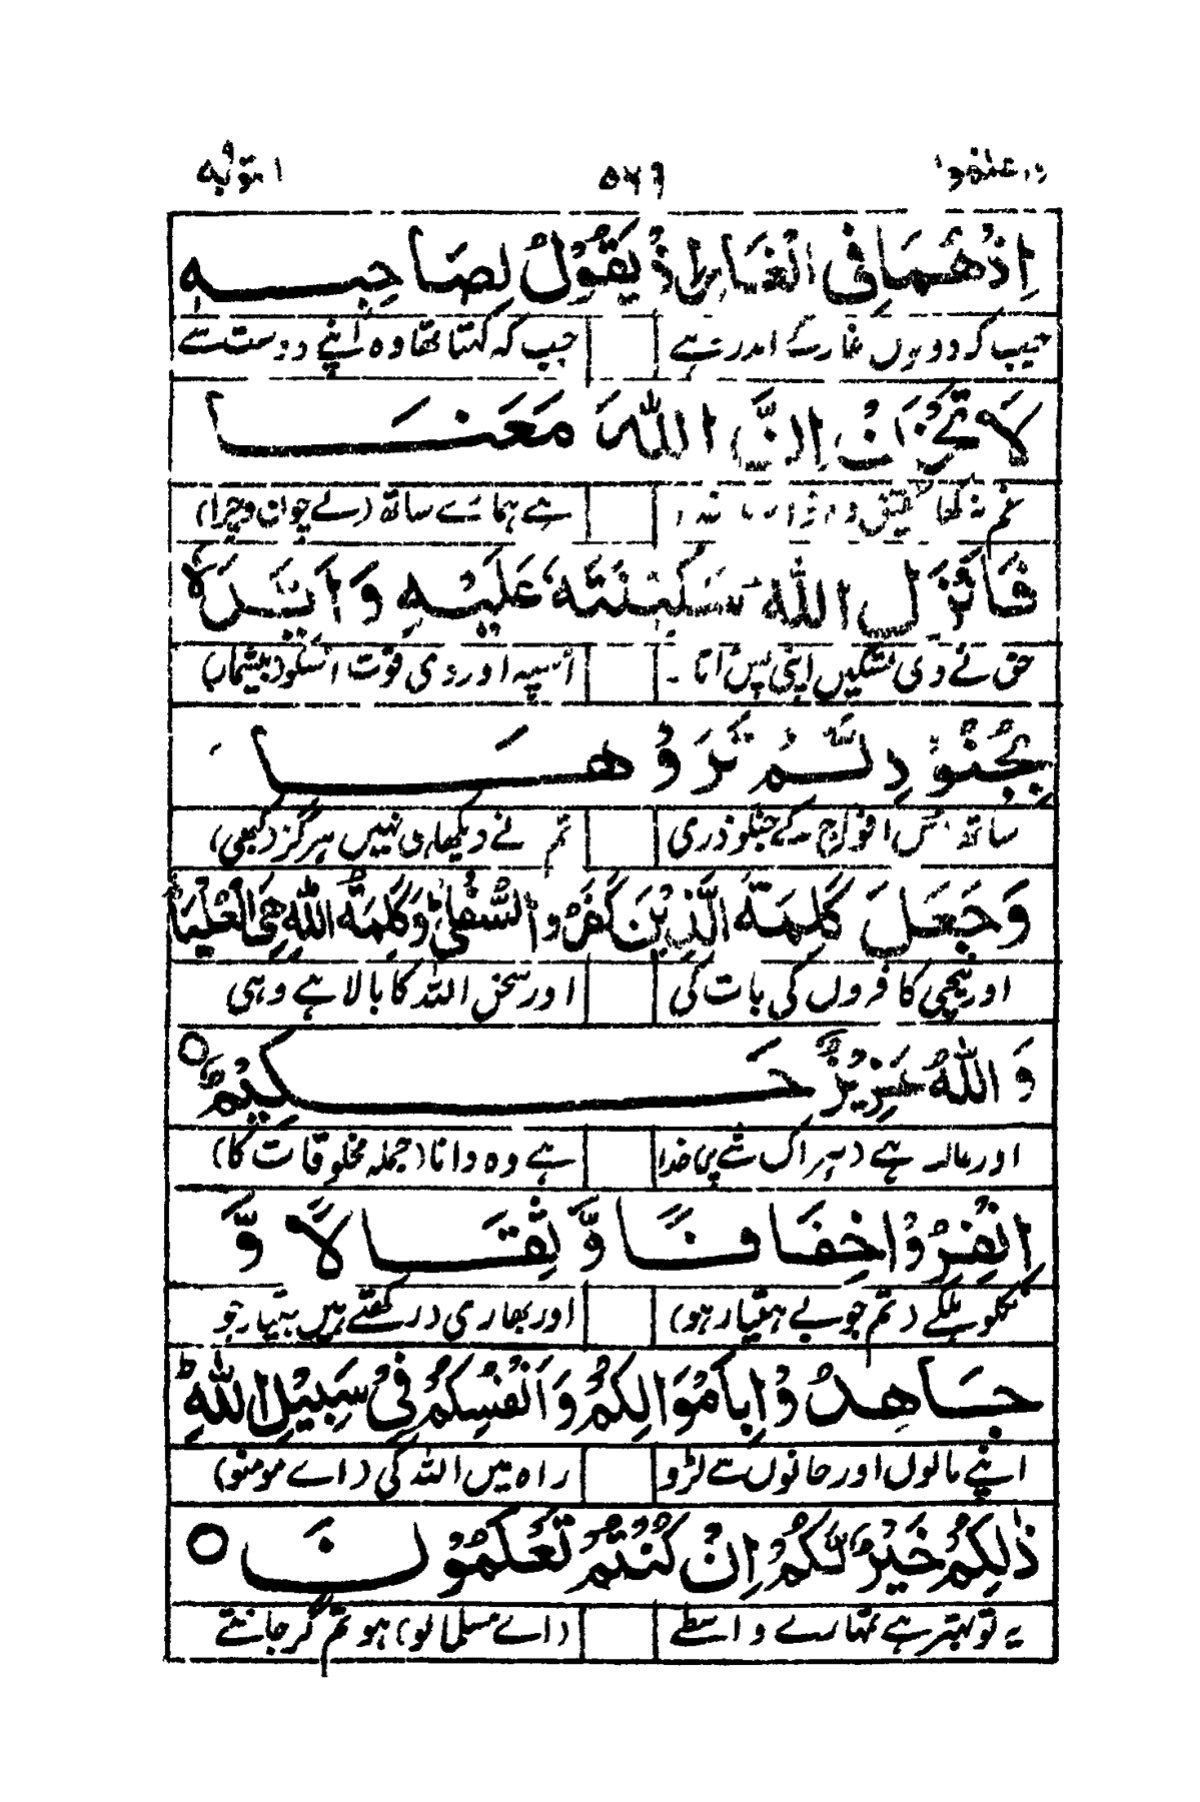 واعلموا ۱۰ ۵۶۶ التوبه ۹
اِذْ هُمَا فِی الْغَارِ اِذْ یَقُوْلُ لِصَاحِبِهٖ
جب کہ دونوں غار کے اندر تھے جب کہ کہتا تھا وہ اپنے دوست سے
لَا تَحْزَنْ اِنَّ اللّٰهَ مَعَنَا
غم نہ کھا تحقیق ہے ہمارے ساتھ (بے چون و چرا)
فَاَنْزَلَ اللّٰهُ سَكِیْنَتَهٗ عَلَیْهِ وَاَیَّدَهٗ
حق نے دی تسکیں اپنی اسپہ اور دی قوت اسکو بیشماب
بِجُنُوْدٍ لَّمْ تَرَوْهَا
ساتھ اس افواج کے جنکو ذری تم نے دیکھا ہی نہیں ہرگز (کبھی)
وَجَعَلَ كَلِمَةَ الَّذِیْنَ كَفَرُوا السُّفْلٰیؕ وَكَلِمَةُ اللّٰهِ هِیَ الْعُلْیَاؕ
اور نیچی کافروں کی بات کی اور سخن اللہ کا بالا ہے وہی
وَ اللّٰهُ عَزِیْزٌ حَكِیْمٌ ○
اور غالب ہے (ہر اک شے پر خدا ہے وہ دانا (جملہ مخلوقات کا)
اِنْفِرُوْا خِفَافًا وَّ ثِقَالًا وَّ
نکلو ہلکے (تم جو بے ہتیار ہو) اور بھاری (رکھتے ہیں ہتیار جو
جَاهِدُوْا بِاَمْوَالِكُمْ وَاَنْفُسِكُمْ فِیْ سَبِیْلِ اللّٰهِؕ
اپنے مالوں اور جانوں سے لڑو راہ میں اللہ کی (اے مومنو)
ذٰلِكُمْ خَیْرٌ لَّكُمْ اِنْ كُنْتُمْ تَعْلَمُوْنَ ○
یہ تو بہتر ہے تمہارے واسطے (اے مسلمانو) ہو تم گر جانتے